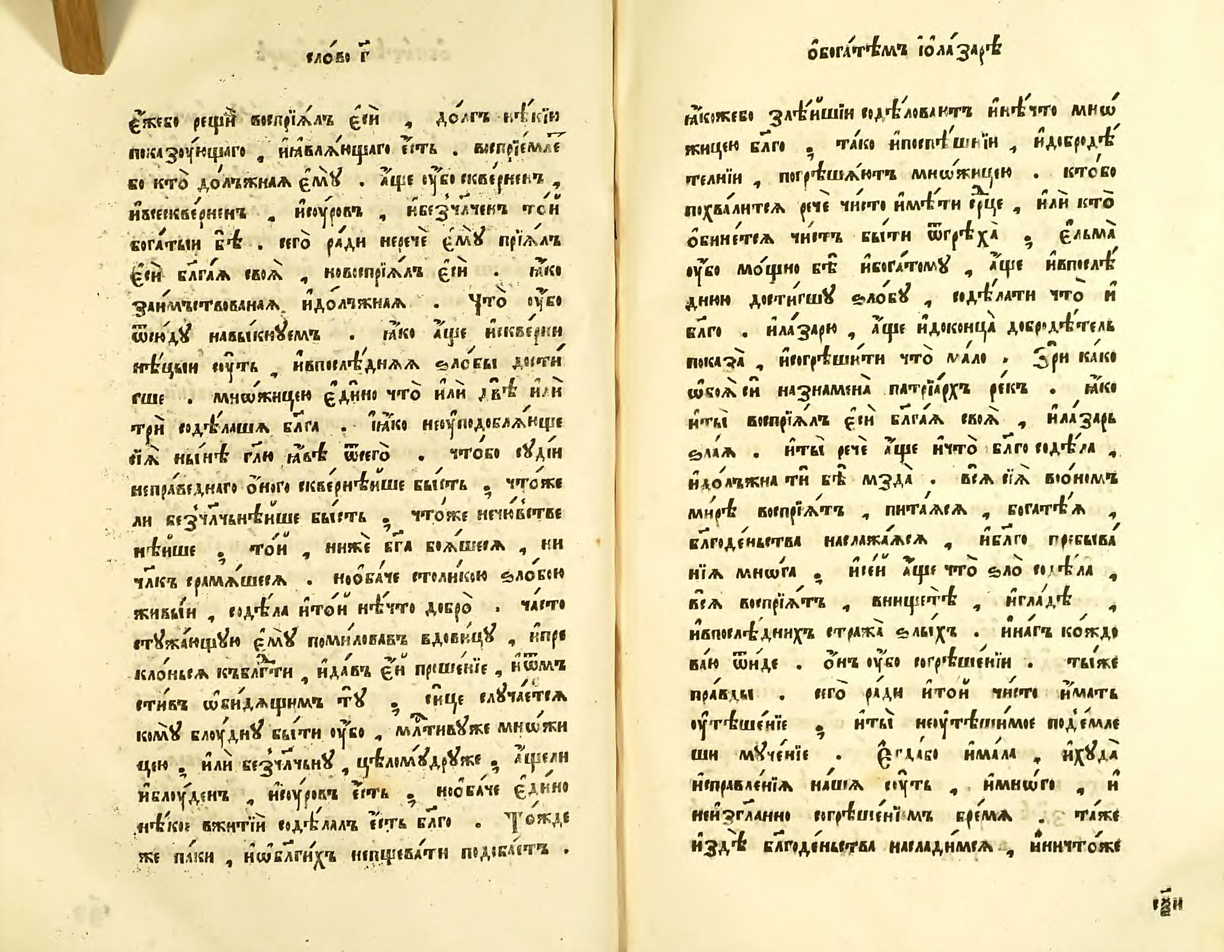 сло́во г҃
є҆́жебо рещѝ воспрїѧ́лъ є҆сѝ , до́лгъ нѣ́кїи
показꙋ́ющаго , и҆ꙗ҆влѧ́ющаго є҆́сть . воспрїе́мле
бо кто̀ до́лъжнаѧ є҆мꙋ̀ . а҆́ще ᲂу҆́бо скве́рненъ ,
и҆всескве́рненъ , и҆сᲂуро́въ , и҆безчл҃ченъ то́й
бога́тыи бѣ̀ . сего̀ ради неречѐ є҆мꙋ̀ прїѧ́лъ
є҆сѝ бл҃га́ѧ своѧ̀ , новоспрїѧ́лъ є҆сѝ . ꙗ҆́ко
заи҆́мъствованаѧ и҆до́лжнаѧ . Что̀ ᲂу҆́бо
ѿсю́дꙋ навыкнꙋемъ . ꙗ҆́ко а҆́ще и҆скве́рни
нѣ́цыи сꙋ́ть , и҆впослѣ́днѧѧ ѕло́бы дости́
гше . мнѡ́жицею є҆ди́но что̀ и҆лѝ двѣ̀ и҆лѝ
трѝ содѣ́лашѧ бл҃га . ꙗ҆́ко неᲂуподоблѧ́юще
сїѧ̀ ны́нѣ гл҃ю ꙗ҆́вѣ ѿсего̀ . что́бо сᲂудїи
непра́веднаго ѻ҆́ного скве́рнѣйше бы́сть ; что́же
ли безчл҃чьнѣ́йше бы́сть ; что́же нечю́встве
нѣ́йше ; то́й , нижѐ бг҃а боѧ́шесѧ , ни
чл҃къ срамѧ́шесѧ . нѻба́че столи́кою ѕло́бою
живы́и , содѣ́ла и҆то́й нѣ́что добро̀ . ча́сто
стꙋжа́ющꙋю є҆мꙋ̀ поми́ловавъ вдови́цꙋ , и҆пре
кло́ньсѧ къбл҃гт҇и , и҆да́въ є҆́й проше́нїе , и҆ѿмъ
сти́въ ѡ҆би́дѧщимъ тꙋ̀ ; си́це слꙋча́етсѧ
комꙋ̀ блꙋ́днꙋ бы́ти ᲂу҆́бо , мл҇тивꙋже мнѡ́жи
цею ; и҆лѝ безчл҃чьнꙋ , цѣломꙋ́друже ; а҆́щели
и҆блᲂу́денъ , и҆сᲂуро́въ є҆́сть ; нѻба́че є҆ди́но
нѣ́кое вжитїѝ содѣ́лалъ є҆́сть бл҃го . То́жде
же па́ки , и҆ѡбл҃ги́хъ непщева́ти подоба́етъ .
ѻ҆бога́тѣмъ і҆ѻла́зарѣ
ꙗ҆́кожебо злѣ́йшїи содѣ́ловаютъ и҆нѣ́что мнѡ́
жицею бл҃го ; та́ко и҆поспѣ́шнїи , и҆добродѣ́
телнїи , погрѣша́ютъ мнѡ́жицею . кто́бо
похва́литсѧ речѐ чи́сто и҆мѣ́ти ср҇це , и҆лѝ кто̀
ѻ҆бине́тсѧ чи́стъ бы́ти ѿгрѣха̀ ; Є҆льма̀
ᲂу҆́бо мо́щно бѣ̀ и҆бога́томꙋ , а҆́ще и҆впослѣ́
днюю дости́гшꙋ ѕло́бꙋ , содѣ́лати что̀ и҆
бл҃го . и҆ла́зарю , а҆́ще и҆доконца̀ добродѣ́тель
показа̀ , и҆согрѣши́ти что̀ ма́ло . Зрѝ ка́ко
ѡ҆боѧ̀ сїѝ назнамена̀ патрїа́рхъ ре́къ . ꙗ҆́ко
и҆ты̀ воспрїѧ́лъ є҆сѝ бл҃га́ѧ своѧ̀ , и҆ла́зарь
ѕла́ѧ . и҆ты̀ речѐ а҆́ще и҆что̀ бл҃го содѣ́ла ,
и҆до́лъжна тѝ бѣ̀ мзда̀ . всѧ̀ сїѧ̀ вѻ҆́номъ
ми́рѣ воспрїѧ́тъ , пита́ѧсѧ , богатѣ́ѧ ,
бл҃годе́ньства наслажа́ѧсѧ , и҆бл҃го пребыва́
нїѧ мнѡ́га ; и҆се́й а҆́ще что̀ ѕло̀ содѣ́ла ,
всѧ̀ воспрїѧ́тъ , внищетѣ̀ , и҆гла́дѣ ,
и҆впослѣ́днихъ стража̀ ѕлы́хъ . и҆на́гъ ко́ждо
ва́ю ѿи́де . ѻ҆́нъ ᲂу҆́бо согрѣше́нїи . ты́же
пра́вды . сего̀ ра́ди и҆то́й чи́сто и҆́мать
ᲂу҆тѣше́нїе ; и҆ты̀ неᲂутѣши́мое под̾е́мле
ши мꙋче́нїе . Є҆гда́бо и҆ма́ла , и҆хꙋда̀
и҆справле́нїѧ на́шѧ сꙋ́ть , и҆мно́го , и҆
неи҆зг҃ланно согрѣше́нїимъ бре́мѧ . та́же
и҆здѣ̀ бл҃годе́ньства наслади́мсѧ , и҆ничто́же